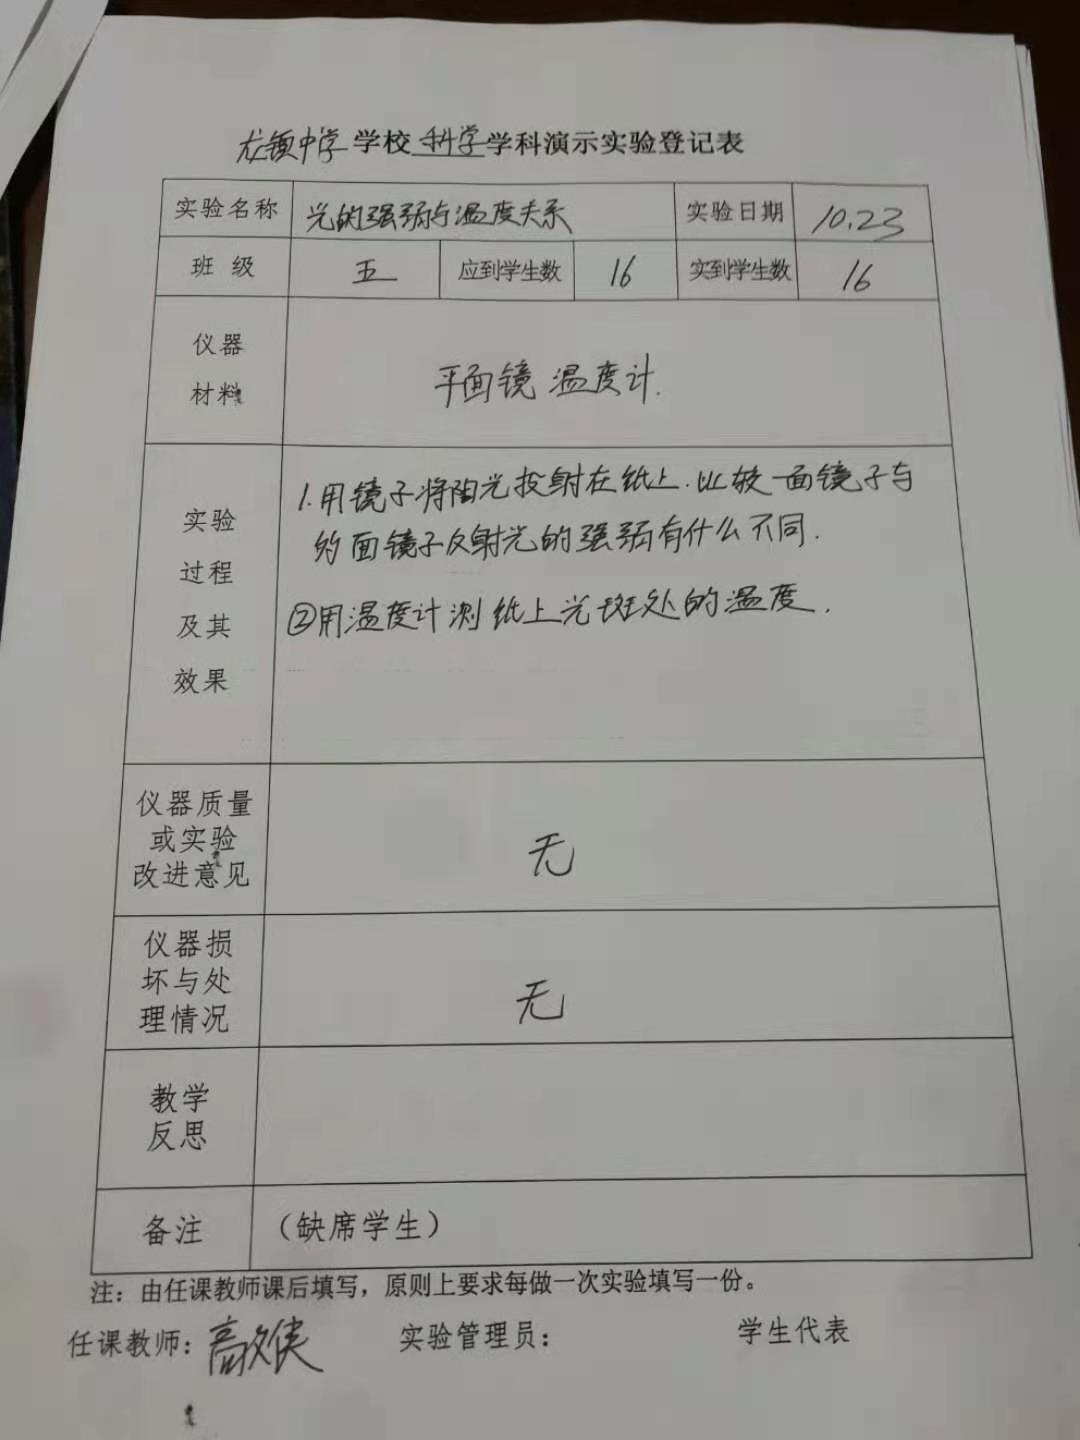 龙镇中学学校科学学科演示实验登记表
实验名称 光的强弱与温度关系 实验日期 10.23
班 级 五 应到学生数 16 实到学生数 16
仪器
材料
平面镜 温度计.
实验
过程
及其
效果
1.用镜子将阳光投射在纸上.比较一面镜子与
的面镜子反射光的强弱有什么不同.
②用温度计测纸上光斑处的温度.
仪器质量
或实验
改进意见
无
仪器损
坏与处
理情况
无
教学
反思
备注 （缺席学生）
注：由任课教师课后填写，原则上要求每做一次实验填写一份。
任课教师： 实验管理员： 学生代表